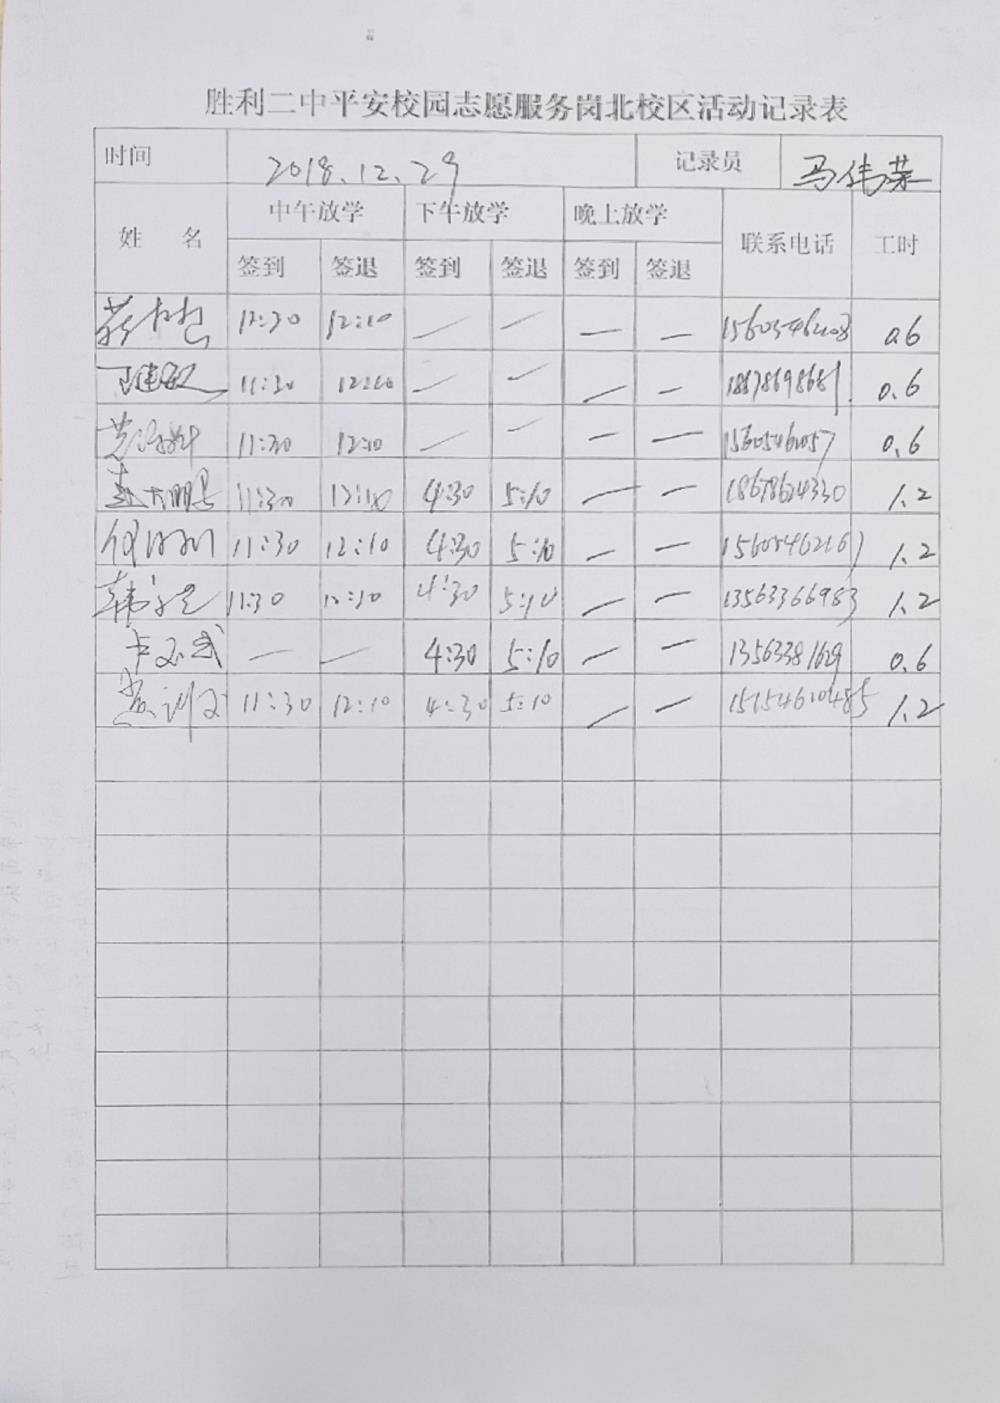 胜利二中平安校园志愿服务岗北校区活动记录表
时间 2018.12.29 记录员 马伟荣
姓 名 中午放学 下午放学 晚上放学 联系电话 工时
签到 签退 签到 签退 签到 签退
12:30 12:10 — — — — 0.6
11:30 12:10 — — — — 18678698681 0.6
11:30 12:10 — — — — 15605462057 0.6
11:30 12:10 4:30 5:10 — — 18678624330 1.2
11:30 12:10 4:30 5:10 — — 15605462167 1.2
11:30 12:10 4:30 5:10 — — 13563366983 1.2
— — 4:30 5:10 — — 13563381629 0.6
11:30 12:10 4:30 5:10 — — 1.2